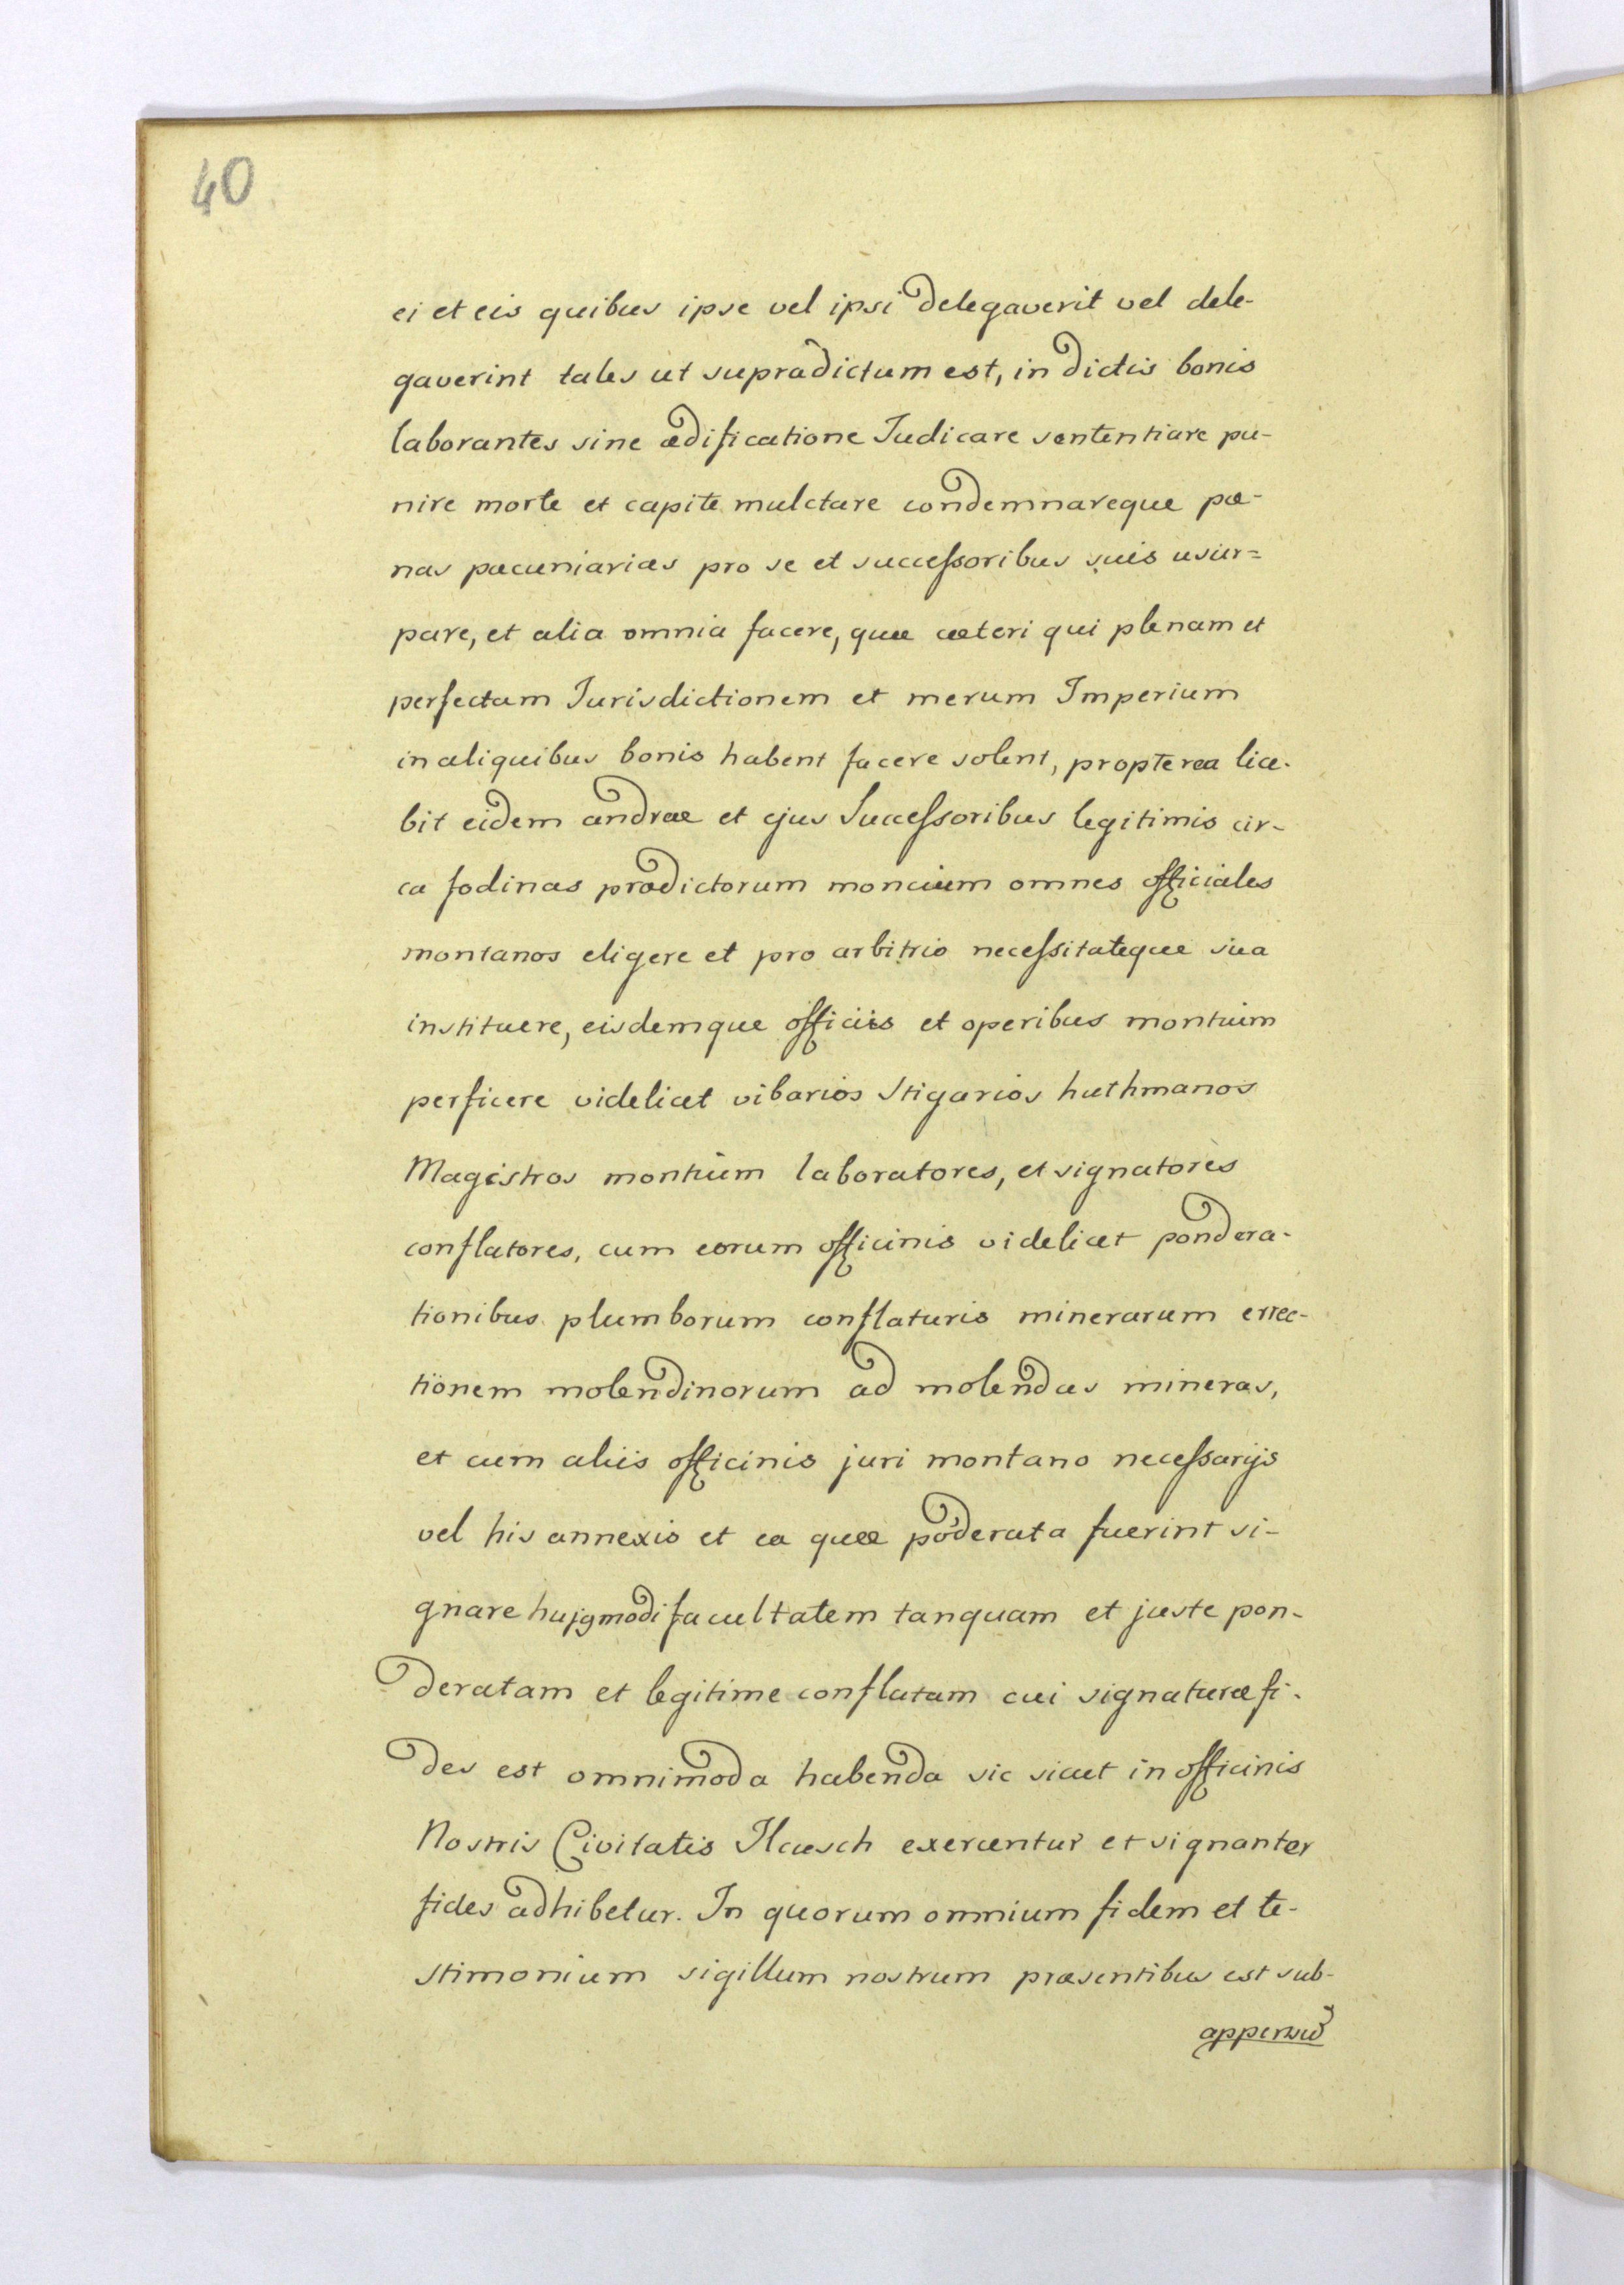 40
ei et eis quibus ipse vel ipsi delegaverit vel dele-
gaverint tales ut supradictum est, in dictis bonis
laborantes sine ædificatione Judicare sententiare pu-
nire morte et capite mulctare condemnareque pæ-
nas pæcuniarias pro se et successoribus suis usur=
pare, et alia omnia facere, quæ cæteri qui plenam et
perfectam Jurisdictionem et merum Imperium
in aliquibus bonis habent facere solent, propterea lice-
bit eidem andræ et ejus Successoribus legitimis cir-
ca fodinas prædictorum moncium omnes officiales
montanos eligere et pro arbitrio necessitateque sua
instituere, eisdemque officiis et operibus montium
perficere videlicet vibarios Stigarios huthmanos
Magistros montium laboratores, et signatores
conflatores, cum eorum officinis videlicet pondera-
tionibus plumborum conflaturis minerarum errec-
tionem molendinorum ad molendas mineras,
et cum aliis officinis juri montano necessarijs
vel his annexis et ea quæ põderata fuerint si-
gnare hujgmodi facultatem tanquam et juste pon-
deratam et legitime conflatam cui signaturæ fi-
des est omnimoda habenda sic sicut in officinis
Nostris Civitatis Ilcusch exercentur et signanter
fides adhibetur. In quorum omnium fidem et te-
stimonium sigillum nostrum præsentibus est sub-
appensũ